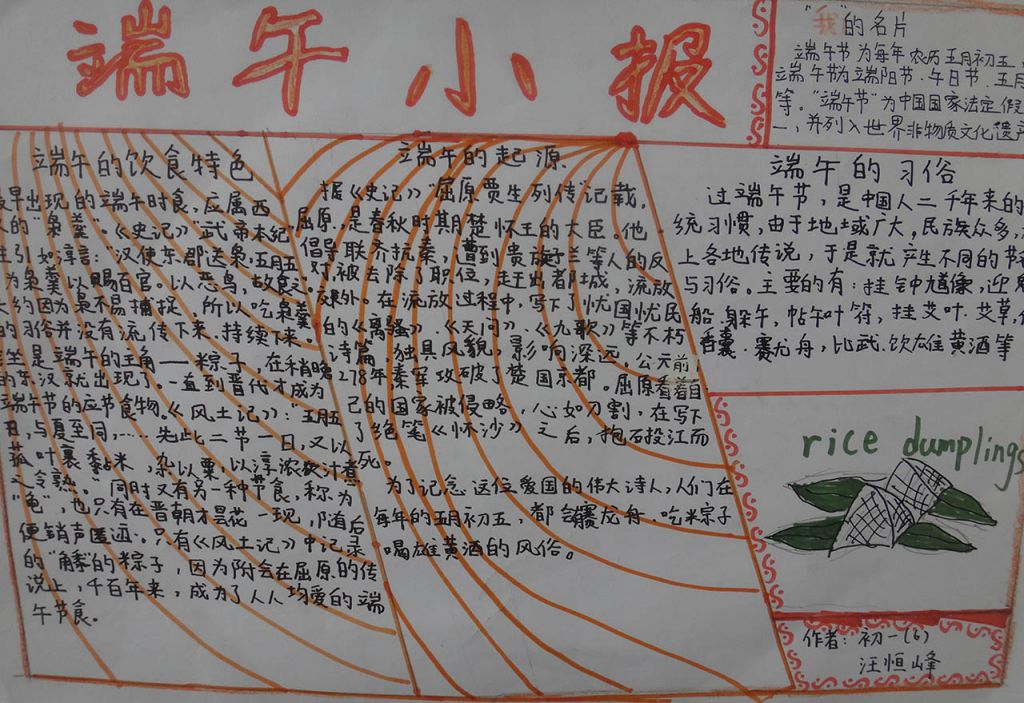 端午小报
"我"的名片
端午节为每年农历五月初五
端午节为端阳节、午日节、五月
等。"端午节"为中国国家法定假
一,并列入世界非物质文化遗产
端午的饮食特色
最早出现的端午时食,应属西
的"枭羹"。《史记》"武帝本纪"
引如淳言:"汉使东郡送枭,五月五
为枭羹以赐百官。以恶鸟,故食之。"
大约因为枭不易捕捉,所以吃枭羹
的习俗并没有流传下来,持续下来。
是端午的主角——粽子,在稍晚
的东汉就出现了。一直到晋代才成为
端午节的应节食物。《风土记》:"五月五
日,与夏至同,……先此二节一日,又以
菰叶裹黏米,杂以粟,以淳浓灰汁煮
之令熟。"同时又有另一种节食,称为
"龟",也只有在晋朝才昙花一现,随后
便销声匿迹。只有《风土记》中记录
的"角黍"的粽子,因为附会在屈原的传
说上,千百年来,成为了人人均爱的端
午节食。
端午的起源
据《史记》"屈原贾生列传"记载,
屈原,是春秋时期楚怀王的大臣。他
倡导联齐抗秦,遭到贵族子兰等人的反
对,被去除了职位,走王出者都城,流放
外。在流放过程中,写下了忧国忧民
的《离骚》、《天问》、《九歌》等不朽
诗篇,独具风貌,影响深远。公元前
278年秦军攻破了楚国京都。屈原看着自
己的国家被侵略,心如刀割,在写下
了绝笔《怀沙》之后,抱石投江而
死。
为了记念这位爱国的伟大诗人,人们在
每年的五月初五,都会赛龙舟、吃米粽子
喝雄黄酒的风俗。
端午的习俗
过端午节,是中国人二千年来的
统习惯,由于地域广大,民族众多,
上各地传说,于是就产生不同的节
与习俗。主要的有:挂钟馗像,迎鬼
船,躲午,帖午叶符,挂艾叶、艾草,
香囊、赛龙舟,比武、饮雄黄酒等
rice dumplings
作者:初一(6)
汪恒峰